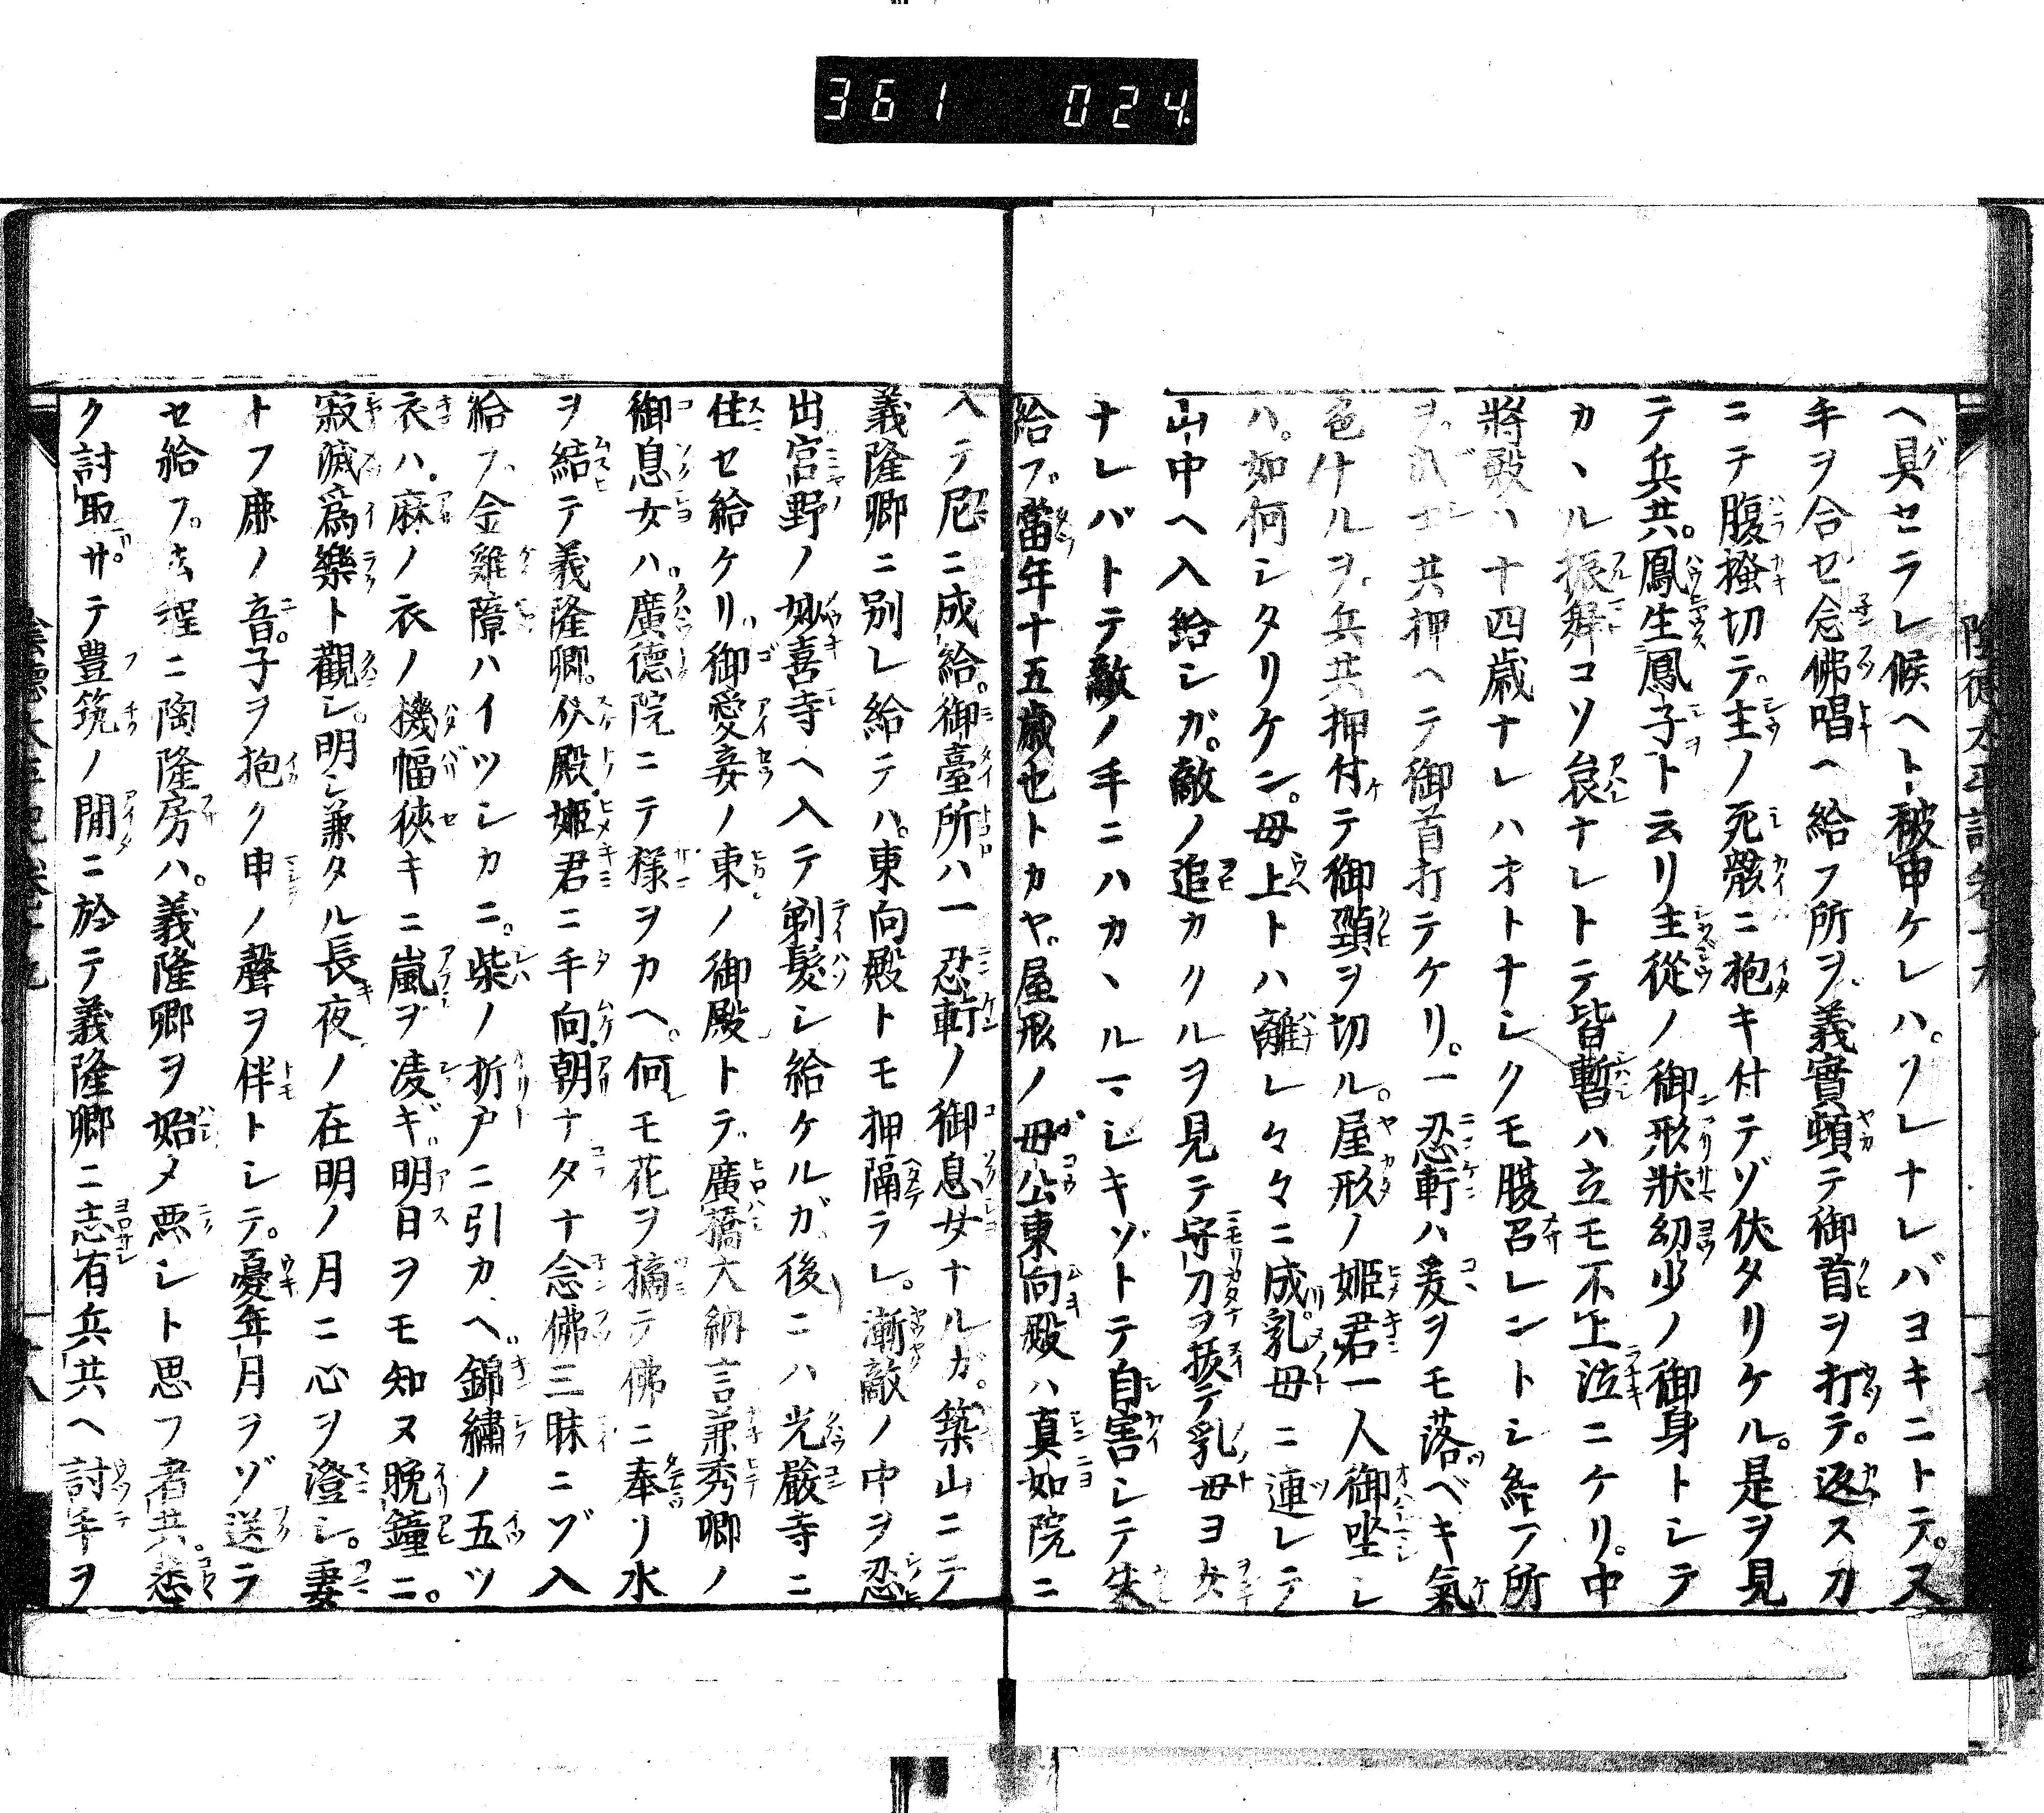 361 024
ヘ具セラレ候ヘト被申ケレハ。ソレナレバヨキニトテ。又
手ヲ合セ念佛唱ヘ給フ所ヲ義實頓テ御首ヲ打テ。返ス刀
ニテ腹搔切テ。主ノ死骸ニ抱キ付テゾ伏タリケル。是ヲ見
テ兵共。鳳生鳳子ト云リ主從ノ御形狀幼少ノ御身トシテ
カヽル振舞コソ哀ナレトテ皆暫ハ立モ不上泣ニケリ。中
將殿ハ十四歳ナレハオトナシクモ腹召レントシ給フ所
ヲ共押ヘテ御首打テケリ。一忍軒ハ爰ヲモ落ベキ氣
色ナルヲ。兵共押付テ御頸ヲ切ル。屋形ノ姬君一人御坐シ
ハ。如何シタリケン。母上トハ離レ々々ニ成。乳母ニ連レテ
山中ヘ入給シガ。敵ノ追カクルヲ見テ守刀ヲ拔テ乳母ヨ女
ナレバトテ敵ノ手ニハカヽルマシキゾトテ自害シテ失
給フ。當年十五歳也トカヤ。屋形ノ母公東向殿ハ真如院ニ
入テ尼ニ成給。御臺所ハ一忍軒ノ御息女ナルガ。築山ニテ
義隆卿ニ別レ給テハ。東向殿トモ押隔ラレ。漸敵ノ中ヲ忍
出宮野ノ妙喜寺ヘ入テ剃髮シ給ケルガ後ニハ光嚴寺ニ
住セ給ケリ御愛妾ノ東ノ御殿トテ。廣橋大納言兼秀卿ノ
御息女ハ。廣德院ニテ様ヲカヘ。何モ花ヲ摘テ佛ニ奉リ水
ヲ結テ義隆卿。伏殿。姬君ニ手向。朝ナタナ念佛三昧ニゾ入
給フ金雞障ハイツシカニ。柴ノ折戸ニ引カヘ。錦繡ノ五ツ
衣ハ。麻ノ衣ノ機幅狹キニ嵐ヲ凌ギ明日ヲモ知ヌ晚鐘ニ。
寂滅爲樂ト觀シ。明シ兼タル長夜ノ在明ノ月ニ心ヲ澄シ。妻
トフ鹿ノ音。子ヲ抱ク申ノ聲ヲ伴トシテ。憂年月ヲゾ送ラ
セ給フ。去程ニ陶隆房ハ。義隆卿ヲ始メ悪シト思フ者共。悉
ク討取サ。テ豊筑ノ間ニ於テ義隆卿ニ志有兵共ヘ討手ヲ